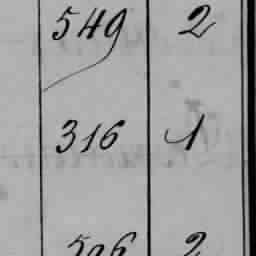 549 2
316 1
596 2